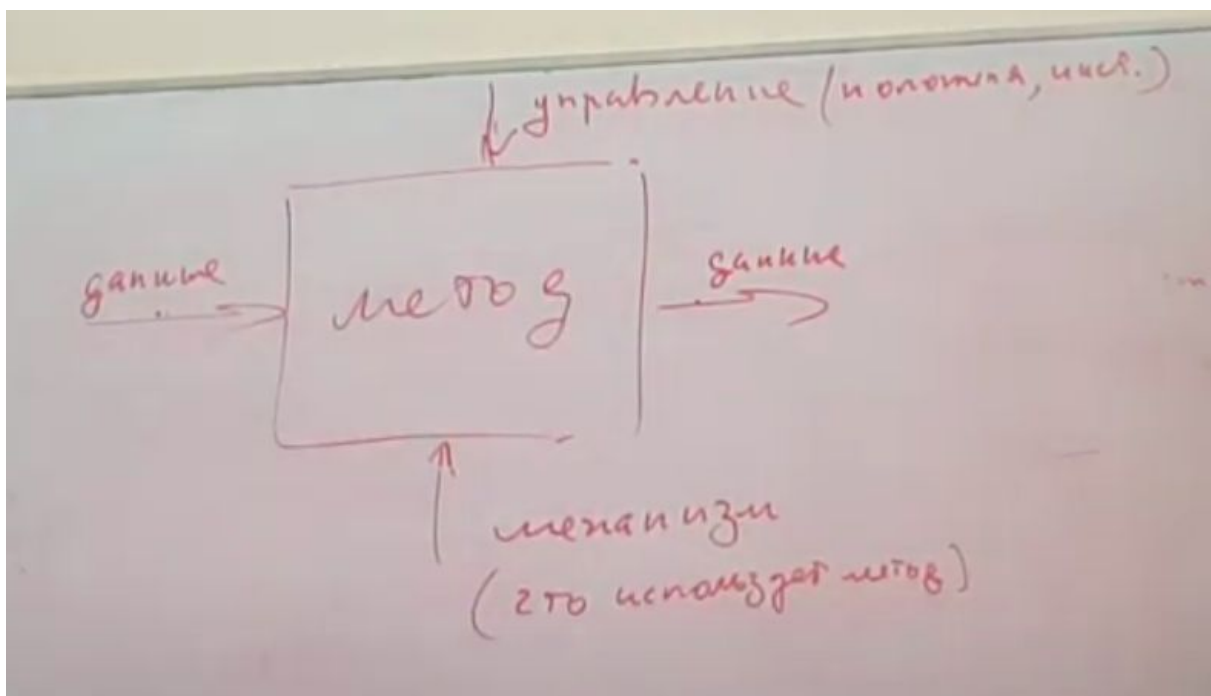 управление (полотна, инст.)
данные
метод
данные
механизм
(что использует метод)